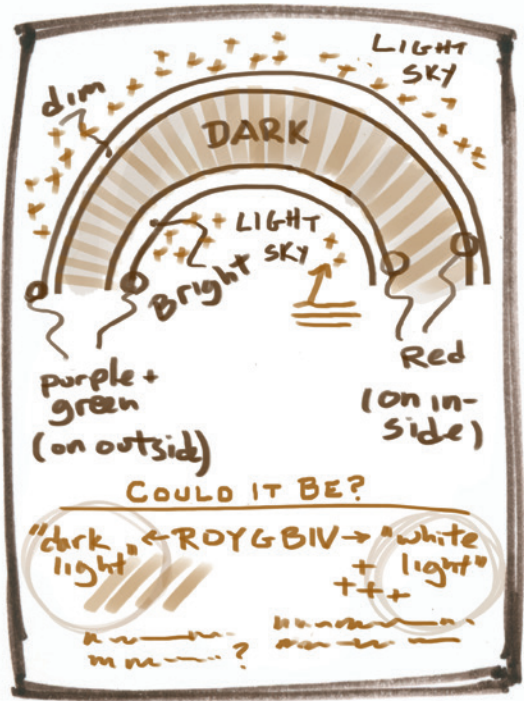 LIGHT
SKY
dim
DARK
LIGHT
SKY
Bright
purple +
green
(on outside)
Red
(on in-
side)
COULD IT BE?
"dark ← ROYGBIV → "white
light" + light"
+++
?